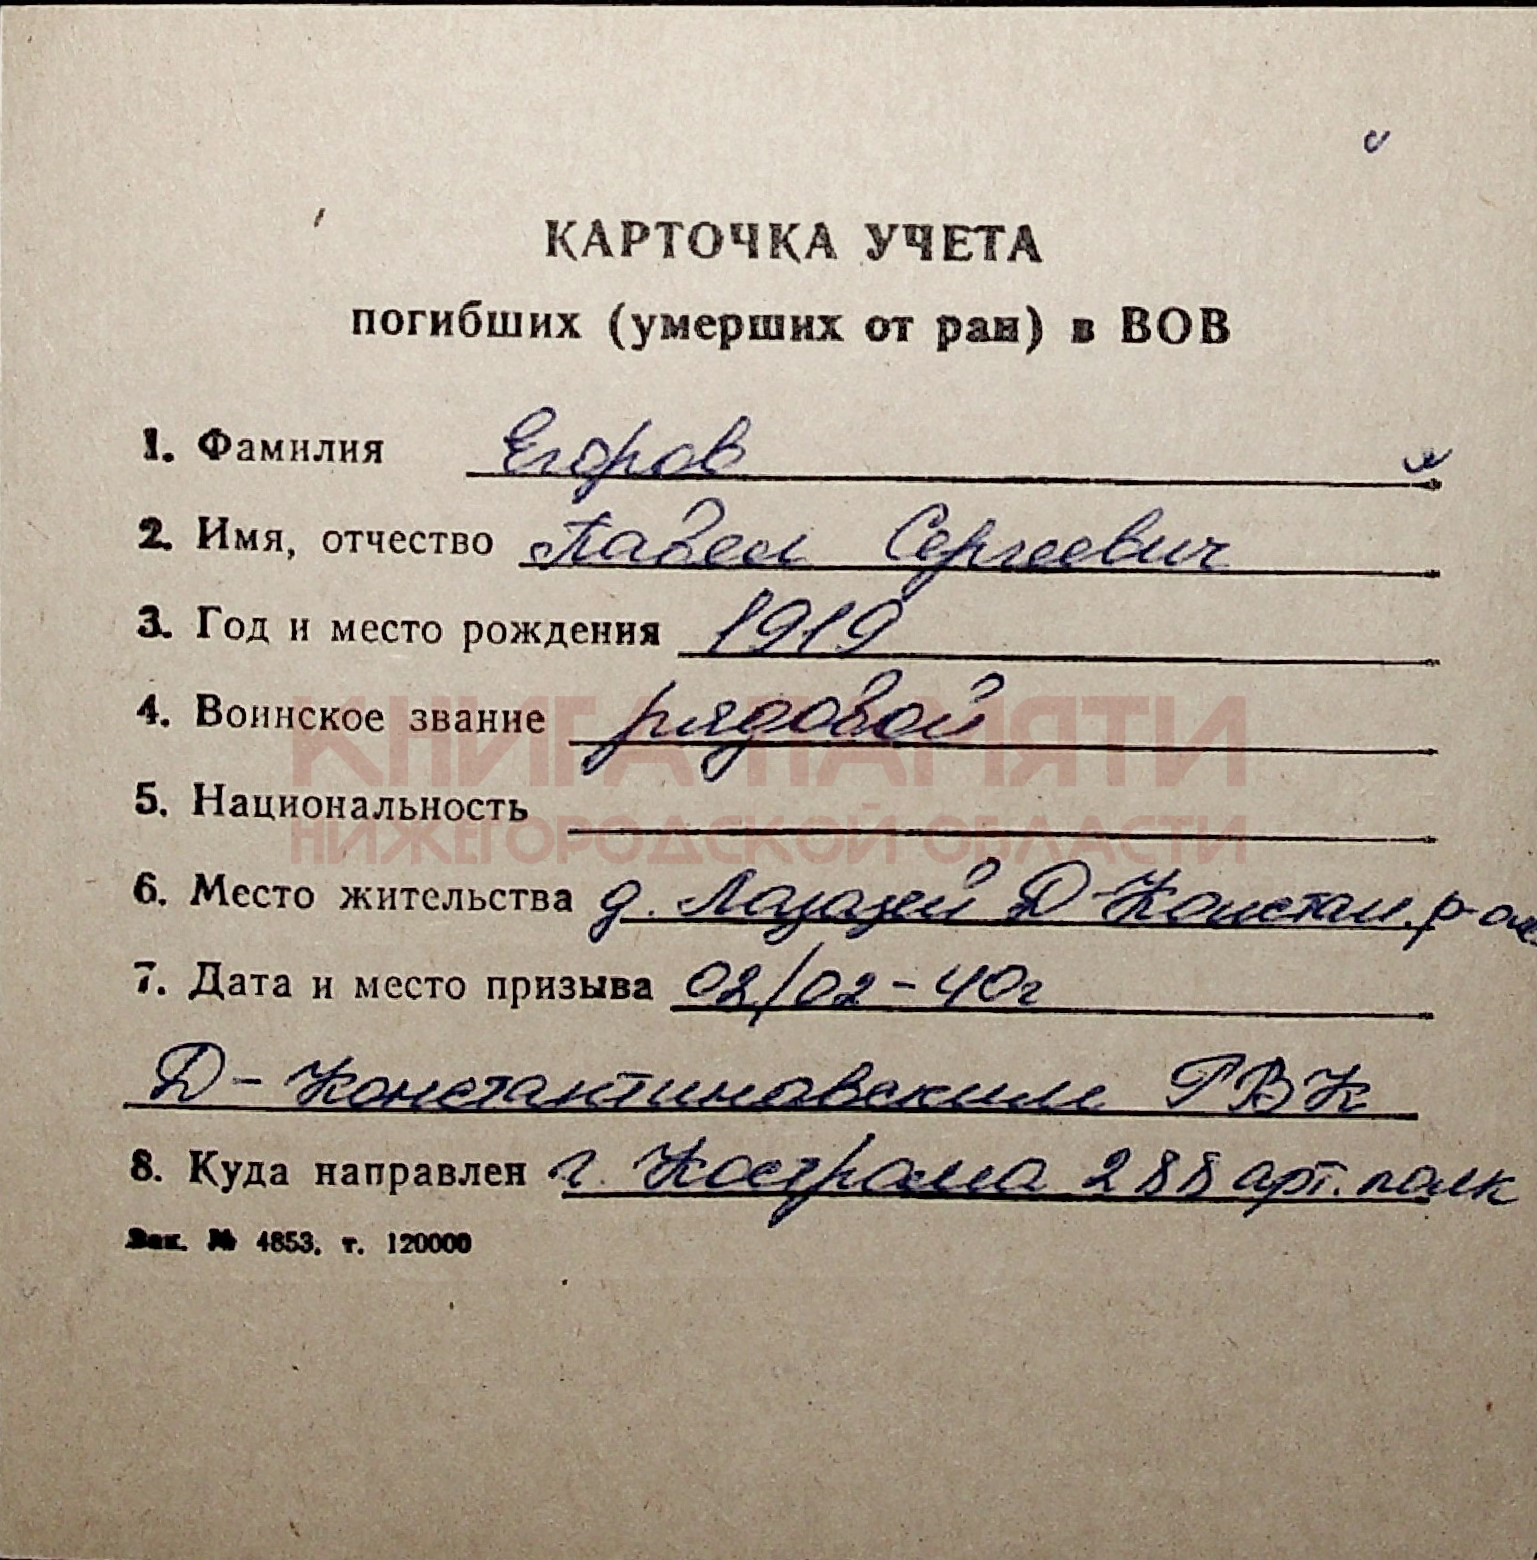 КАРТОЧКА УЧЕТА
погибших (умерших от ран) в ВОВ
1. Фамилия Егоров
2. Имя, отчество Павел Сергеевич
3. Год и место рождения 1919
4. Воинское звание рядовой
КНИГА ПАМЯТИ
5. Национальность
НИЖЕГОРОДСКОЙ ОБЛАСТИ
6. Место жительства д. Лазазей Д-Констан. р-он
7. Дата и место призыва 02/02-40г
Д-Константиновским РВК
8. Куда направлен г. Кострома 288 арт. полк
Зак. № 4853. т. 120000